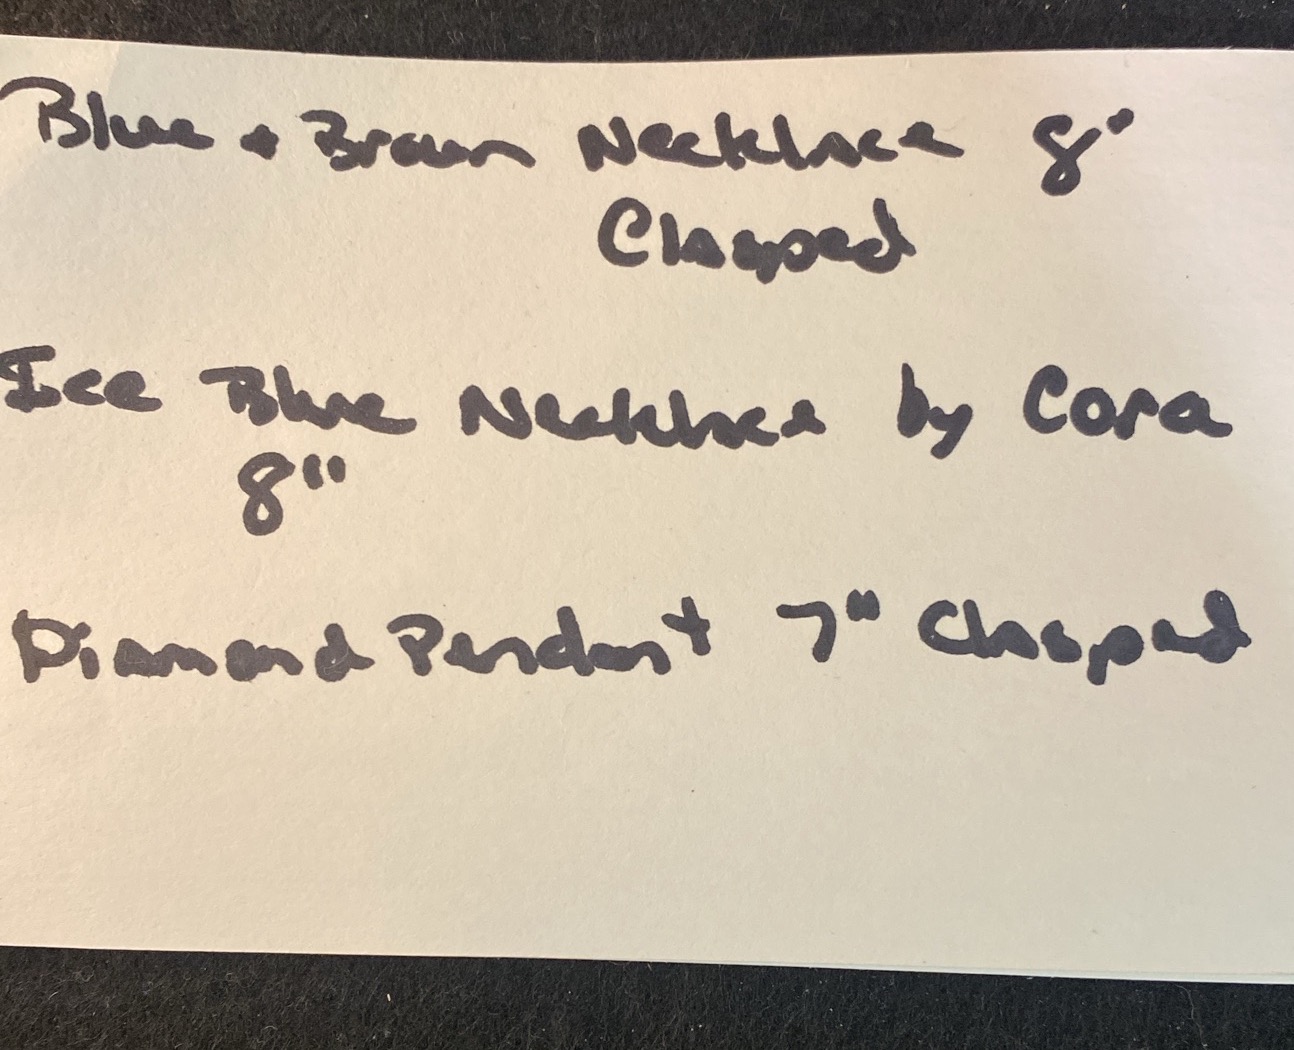 Blue + Brown Necklace 8"
Clasped
Ice Blue Necklace by Cora
8"
Diamond Pendant 7" Clasped